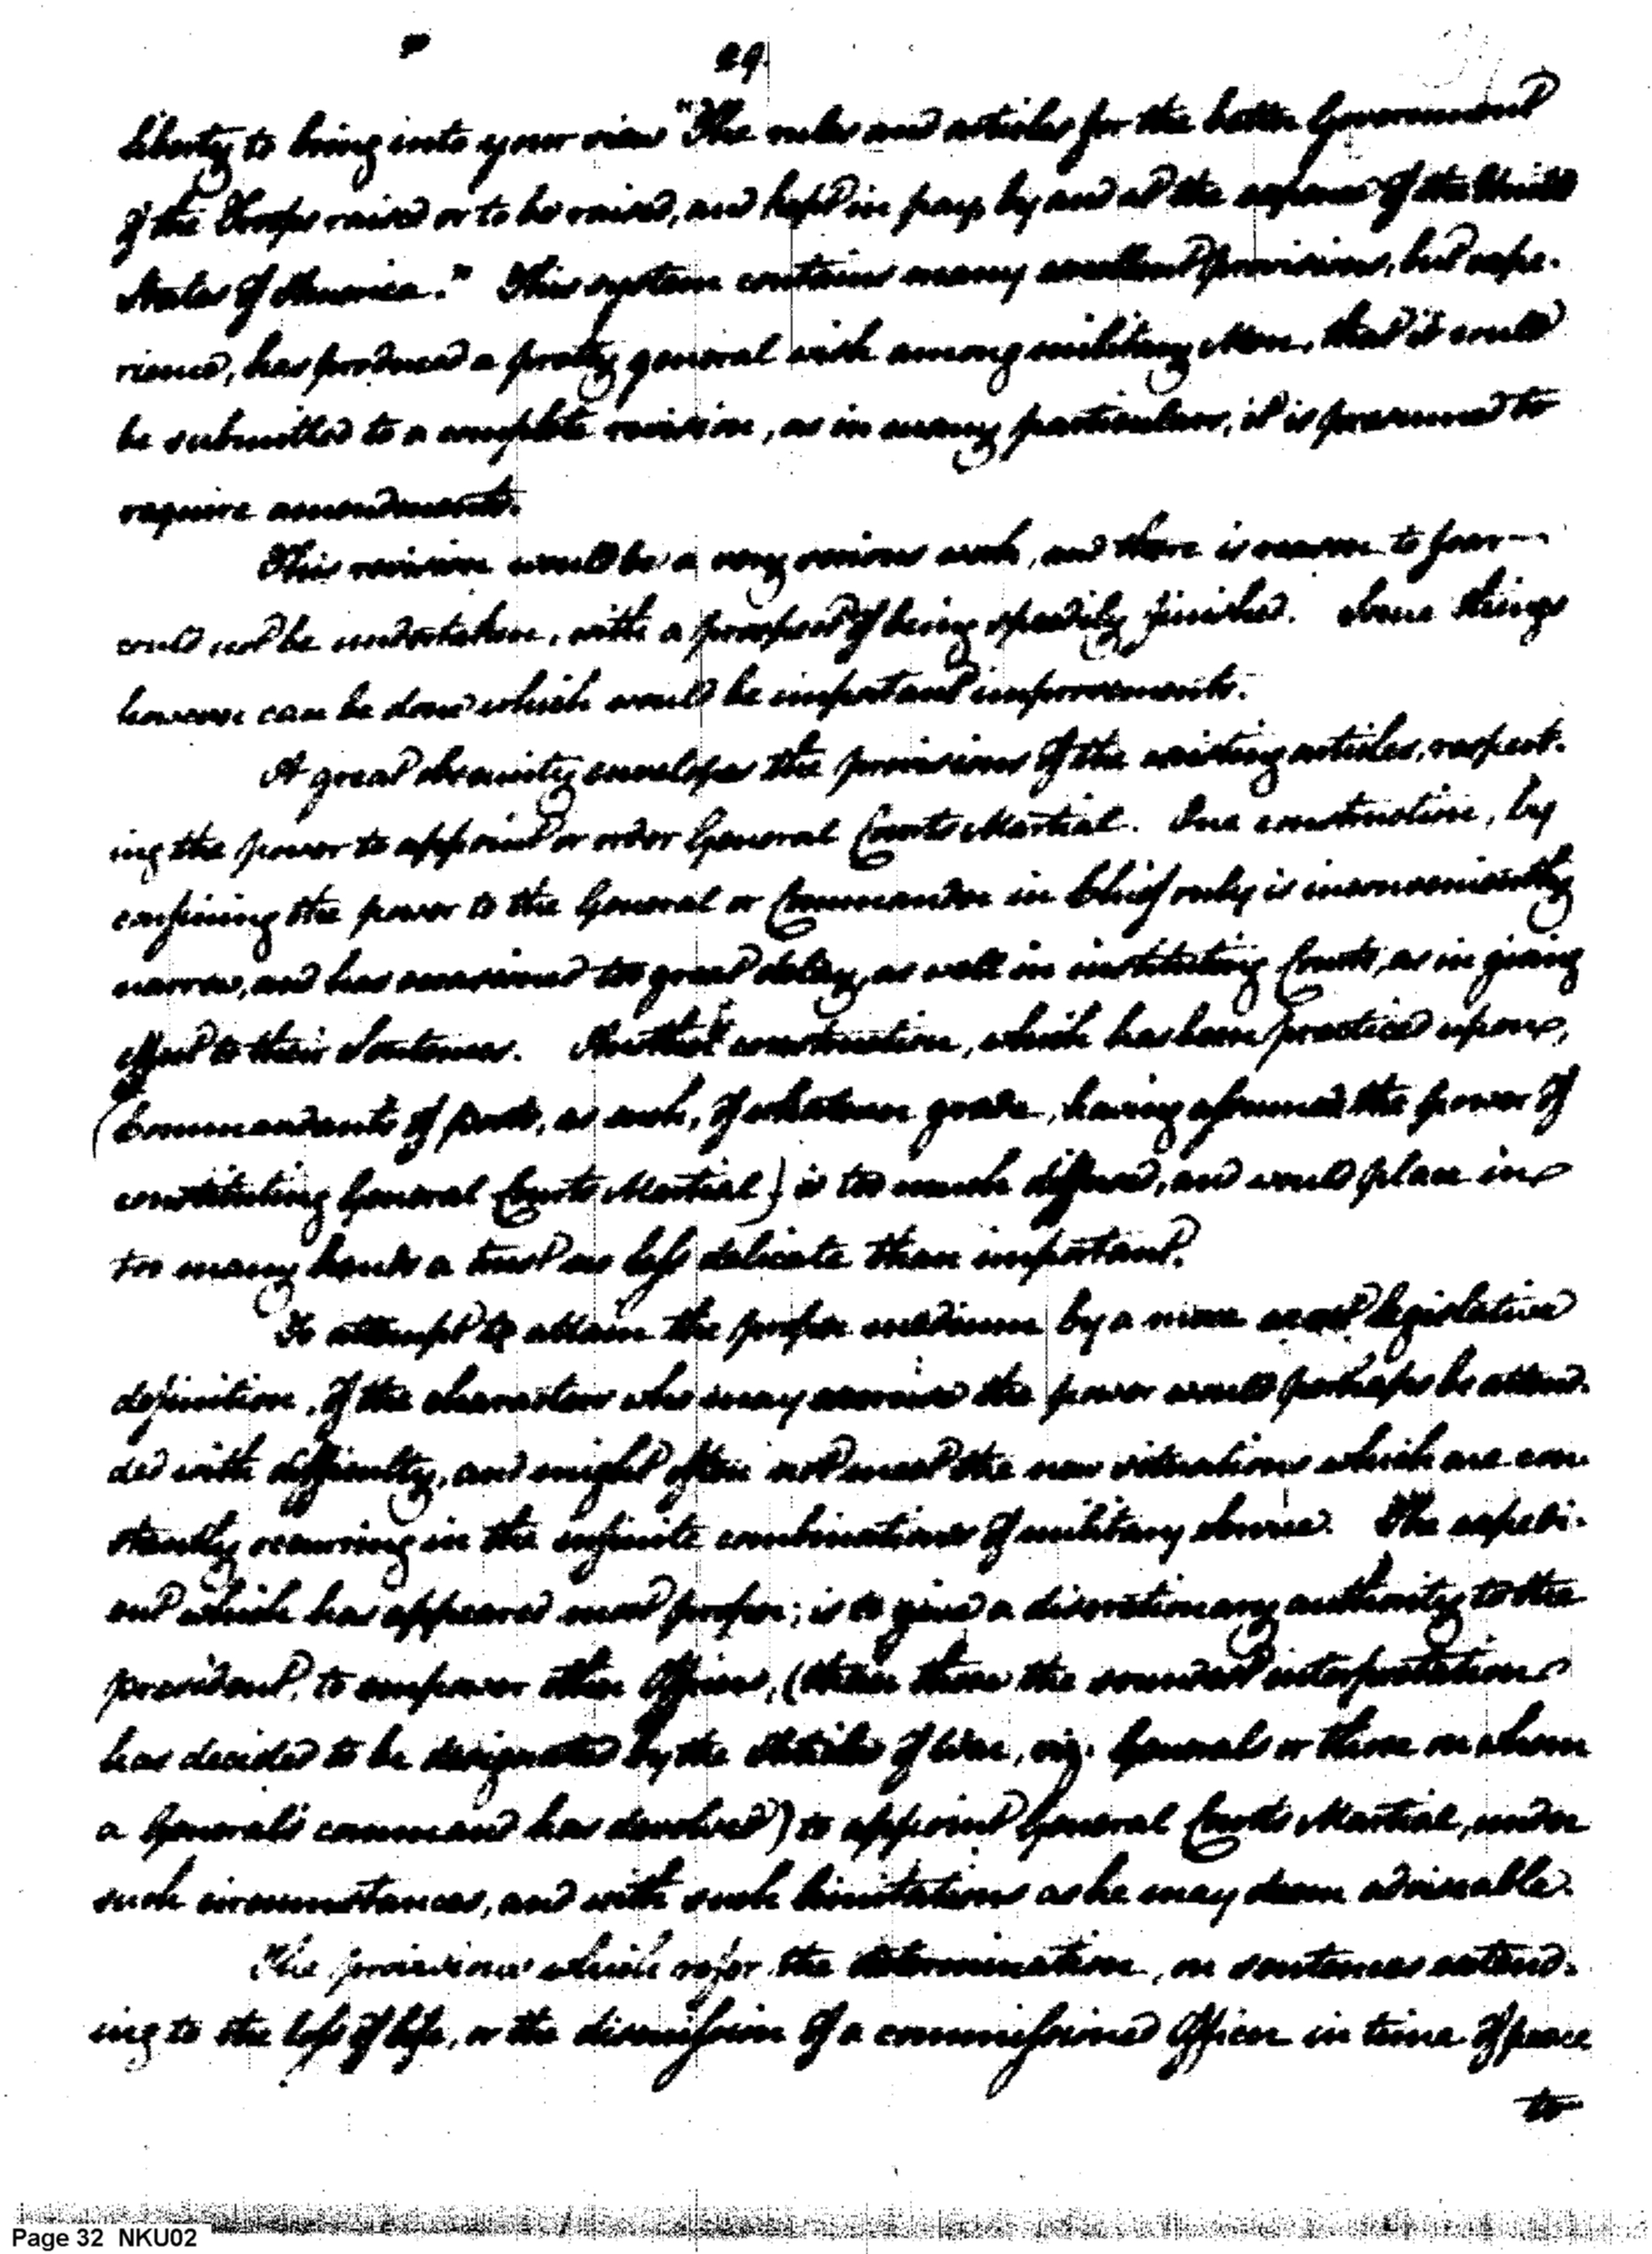 29.
liberty to bring into your view "The rules and articles for the better Government
of the Troops raised or to be raised, and kept in pay, by and at the expense of the United
States of America." This system contains many excellent provisions, but expe-
rience, has produced a pretty general wish among military Men, that it could
be submitted to a complete revision, as in many particulars, it is presumed to
require amendment.
This revision would be a very serious work, and there is reason to fear
could not be undertaken, with a prospect of being speedily finished. Some things
however can be done which would be important improvements.
A great obscurity envelopes the provisions of the existing articles, respect-
ing the power to appoint or order General Courts Martial. One construction, by
confining the power to the General or Commander in Chief only is inconveniently
narrow, and has occasioned too great delay, as well in instituting Courts, as in giving
effect to their Sentences. Another construction, which has been practiced upon,
(Commandants of posts, as such, of whatever grade, having assumed the power of
constituting General Courts Martial) is too much diffused, and would place in
too many hands a trust no less delicate than important.
To attempt to attain the proper medium by a more exact legislative
definition, of the characters who may exercise the power would perhaps be atten-
ded with difficulty, and might often not meet the new situations which are con
stantly occurring in the infinite combinations of military Service. The expedi-
ent which has appeared most proper; is to give a discretionary authority to the
president, to empower other Officers, (than those the soundest interpretation
has decided to be designated by the Articles of War, viz. Generals or those on whom
a General's command has devolved) to appoint General Courts Martial, under
such circumstances, and with such limitations as he may deem adviseable.
The provisions which refer the determination, on sentences extend-
ing to the loss of life, or the dismission of a commissioned Officer in time of peace
to
Page 32 NKU02